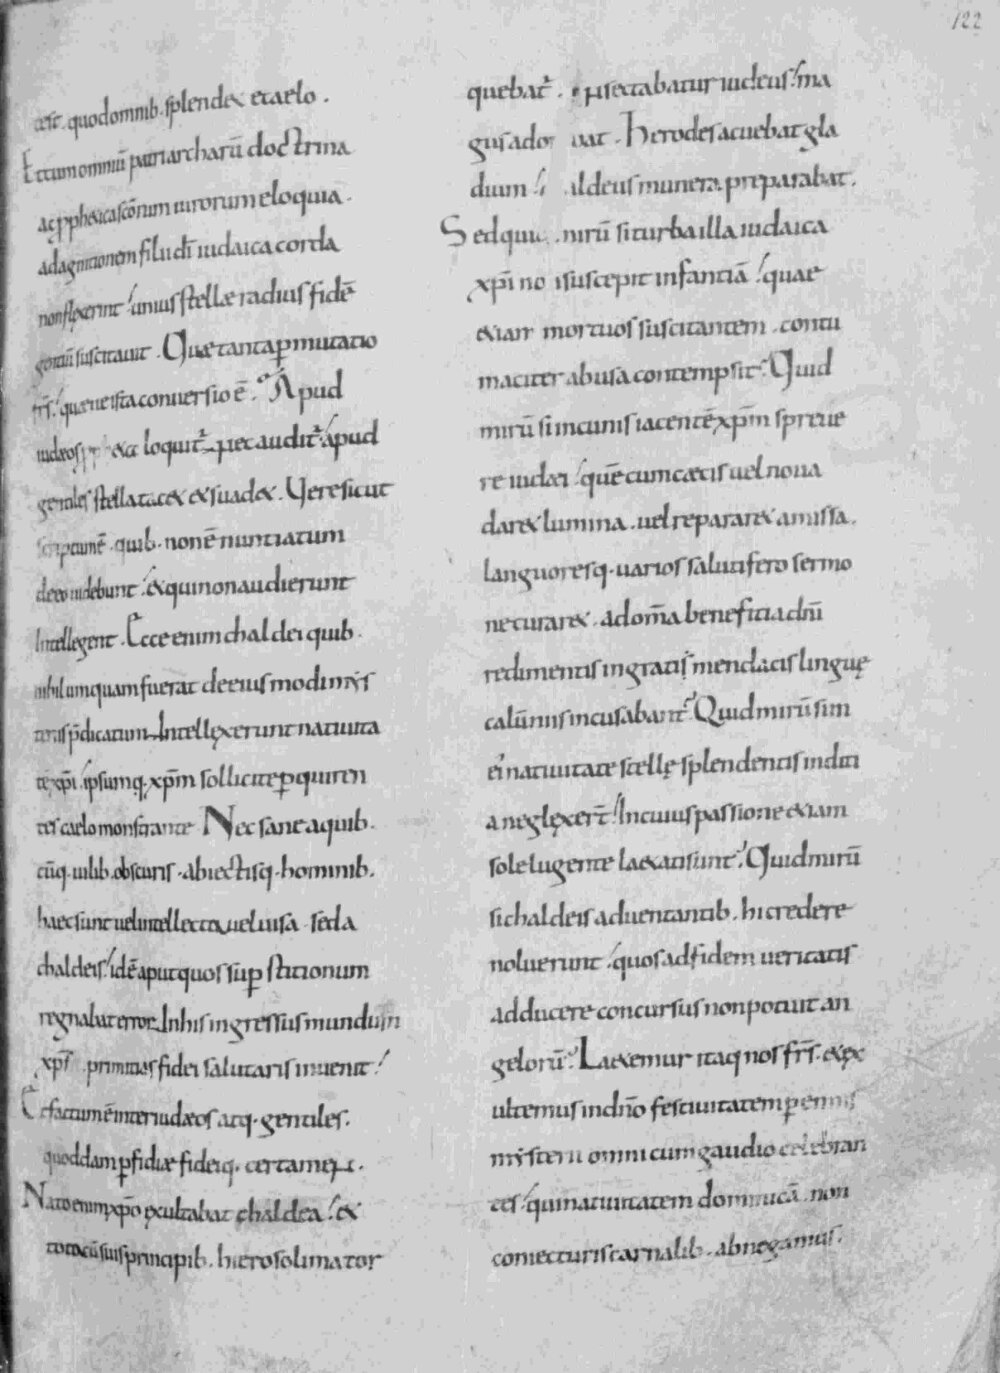 122
est. quod omnib. splendet et caelo.
Et cum omniū patriarcharū doctrina
ac pphetica scōrum uirorum eloquia.
ad agnitionem filii dī iudaica corda
non flexerint! unius stellae radius fidē
gentiū suscitauit. Quae tanta pmutatio
frs̄! quaeue ista conuersio ē? Apud
iudaeos lex loquit̄ nec audit̄! apud
gentiles stella tacet et suadet. Vere sicut
scriptum ē. quib. non ē nuntiatum
de eo uidebunt! et qui non audierunt
Intellegent. Ecce enim chaldei quib.
nihil umquam fuerat de eius modi mys
teriis p̄dicatum. Intellexerunt natiuita
tē xp̄i! ipsumq. xp̄m sollicite pquiren
tes caelo monstrante Nec sane a quib.
cūq. uilib. obscuris. abiectisq. hominib.
haec sunt uel intellecta uel uisa. sed a
chaldeis! idē aput quos sup stitionum
regnabat error. In his ingressus mundum
xp̄s. primitias fidei salutaris inuenit!
Et factum ē inter iudaeos atq. gentiles.
quoddam pfidiae fideiq. certamen.
Nato enim xp̄o exultabat chaldea! et
tota cū suis principib. hierosolima tor
quebat̄. psectabatur iudeus! ma
gus ado bat. Herodes acuebat gla
dium! aldeus munera preparabat.
Sed quid mirū si turba illa iudaica
xp̄i no suscepit infantiā! quae
etiam mortuos suscitantem. contu
maciter abusa contempsit? Quid
mirū si in cunis iacentē xp̄m spreue
re iudaei! quē cum caecis uel noua
daret lumina. uel repararet amissa.
languoresq. uarios salutifero sermo
ne curaret. ad om̄a beneficia dn̄i
redimentis ingratis! mendacis linguę
calūniis incusabant? Quid mirū si in
ei' natiuitate stellę splendentis inditi
a neglexer̄t! In cuius passione etiam
sole lugente laetati sunt? Quid mirū
si chaldeis aduentantib. hi credere
noluerunt! quos ad fidem ueritatis
adducere concursus non potuit an
gelorū? Laetemur itaq nos frs̄. et ex
ultemus in dn̄o festiuitatem perennis
mysterii omni cum gaudio celebran
tes! qui natiuitatem dominicā. non
coniecturis carnalib. abnegamus.